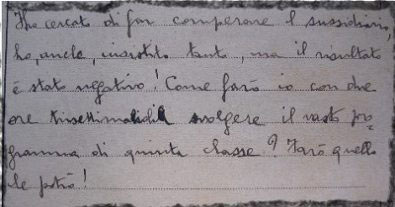 Ho cercato di far comperare il sussidiario,
ho, anche, insistito tanto, ma il risultato
è stato negativo! Come farò io con due
ore trisettimanali svolgere il vasto pro-
gramma di quinta classe? Farò quello
che potrò!